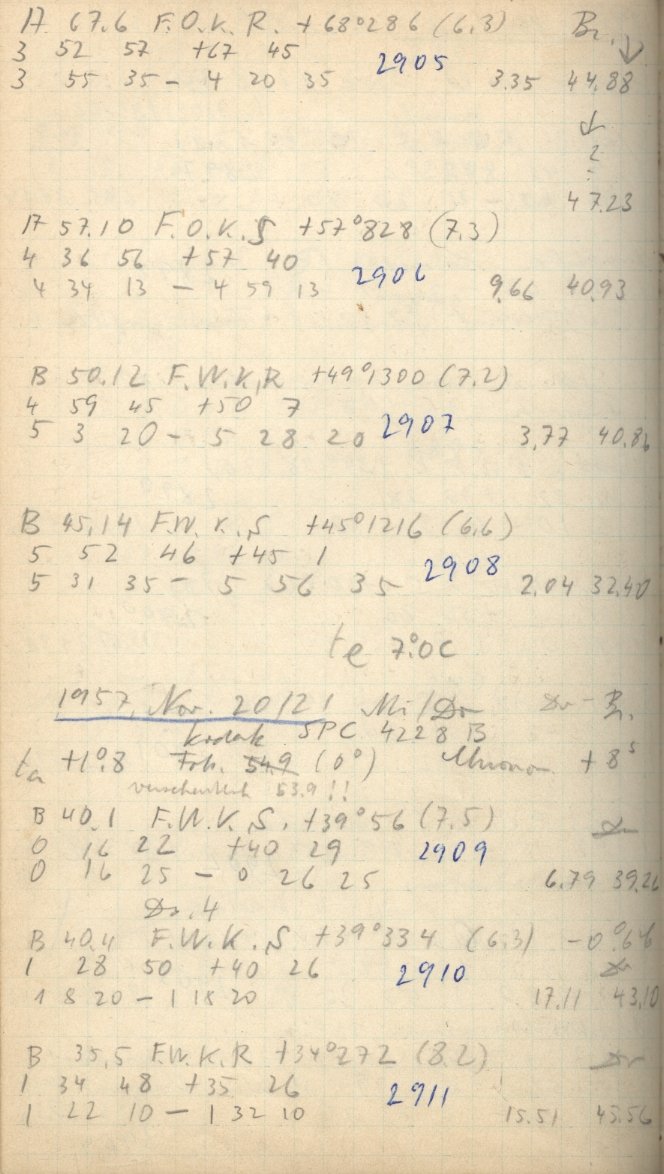 A 67.6 F.O.K.R. +68°286 (6,3) Br.
3 52 57 +67 45
2905
3 55 35 - 4 20 35 3.35 44.88
2
47.23
A 57.10 F.O.K.S +57°828 (7.3)
4 36 56 +57 40
2906
4 34 13 - 4 59 13 9.66 40.93
B 50.12 F.W.K.R +49°1300 (7.2)
4 59 45 +50 7
5 3 20 - 5 28 20 2907 3,77 40.86
B 45,14 F.W.K.S +45°1216 (6,6)
5 52 46 +45 1
2908
5 31 35 - 5 56 35 2,04 32.40
te 7°.0C
1957, Nov. 20/21 Mi/Do Dr - Br.
Kodak SPC 4228 B
ta +1°.8 Fok. 54.9 (0°) +8s
versehentlich 53.9!!
B 40.1 F.W.K.S. +39°56 (7,5) Dr
0 16 22 +40 29 2909
0 16 25 - 0 26 25 6.79 39.26
Dr. 4
B 40.4 F.W.K.S +39°334 (6,3)
1 28 50 +40 26 2910 Dr
1 8 20 - 1 18 20 17.11 43,10
B 35,5 F.W.K.R +34°272 (8.2) Dr
1 34 48 +35 26
2911
1 22 10 - 1 32 10 15.51 45.56